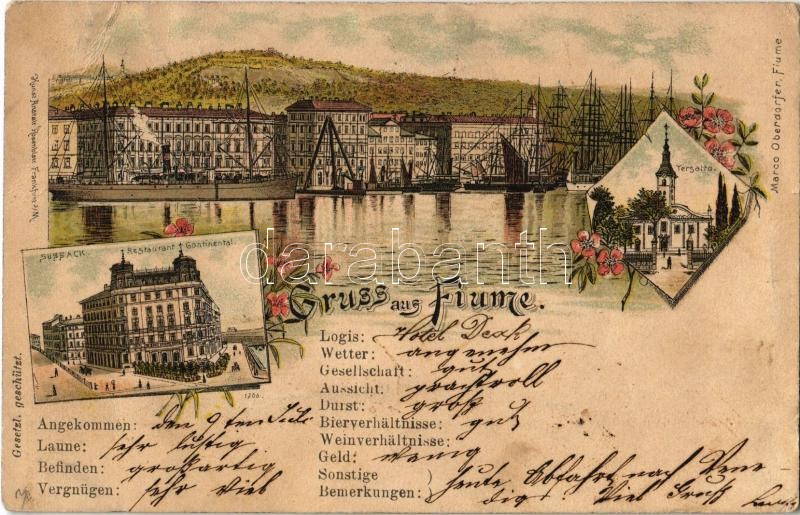 Tersatto.
Marco Oberdorfer, Fiume
Frankfurt a/M.
SUSSACK.
Restaurant Continental.
1206.
darabanth.com
Gruss aus Fiume.
Gesetzl. geschützt.
Logis: Hotel Deak
Wetter: angenehm
Gesellschaft: gut
Aussicht: prachtvoll
Durst: groß
Bierverhältnisse: gut
Weinverhältnisse:
Geld: wenig
Sonstige Bemerkungen: heute Abfahrt nach Vene
dig. Viel Gruß
Angekommen: den 9ten Juli
Laune: sehr lustig
Befinden: großartig
Vergnügen: sehr viel